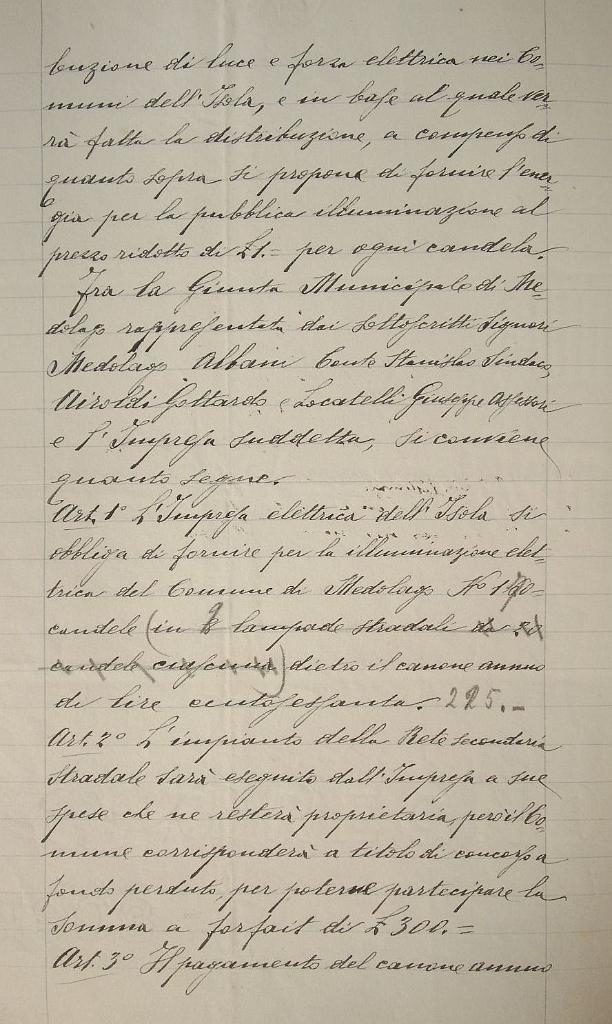 buzione di luce e forza elettrica nei Co=
muni dell'Isola, e in base al quale ver=
rà fatta la distribuzione, a compenso di
quanto sopra si propone di fornire l'ener=
gia per la pubblica illuminazione al
prezzo ridotto di £1.= per ogni candela.
Fra la Giunta Municipale di Me=
dolago rappresentata dai sottoscritti Signori
Medolago Albani Conte Stanislao Sindaco,
Airoldi Gottardo e Locatelli Giuseppe Assessori
e l'Impresa suddetta, si conviene
quanto segue.
Art. 1° L'Impresa elettrica dell'Isola si
obbliga di fornire per la illuminazione elet=
trica del Comune di Medolago N°
candele (in lampade stradali da
candele ciascuna) dietro il canone annuo
di lire centosessanta. 225.=
Art. 2° L'impianto della Rete secondaria
stradale sarà eseguito dall'Impresa a sue
spese che ne resterà proprietaria, però il Co=
mune corrisponderà a titolo di concorso a
fondo perduto, per poterne partecipare la
somma a forfait di £300.=
Art. 3° Il pagamento del canone annuo